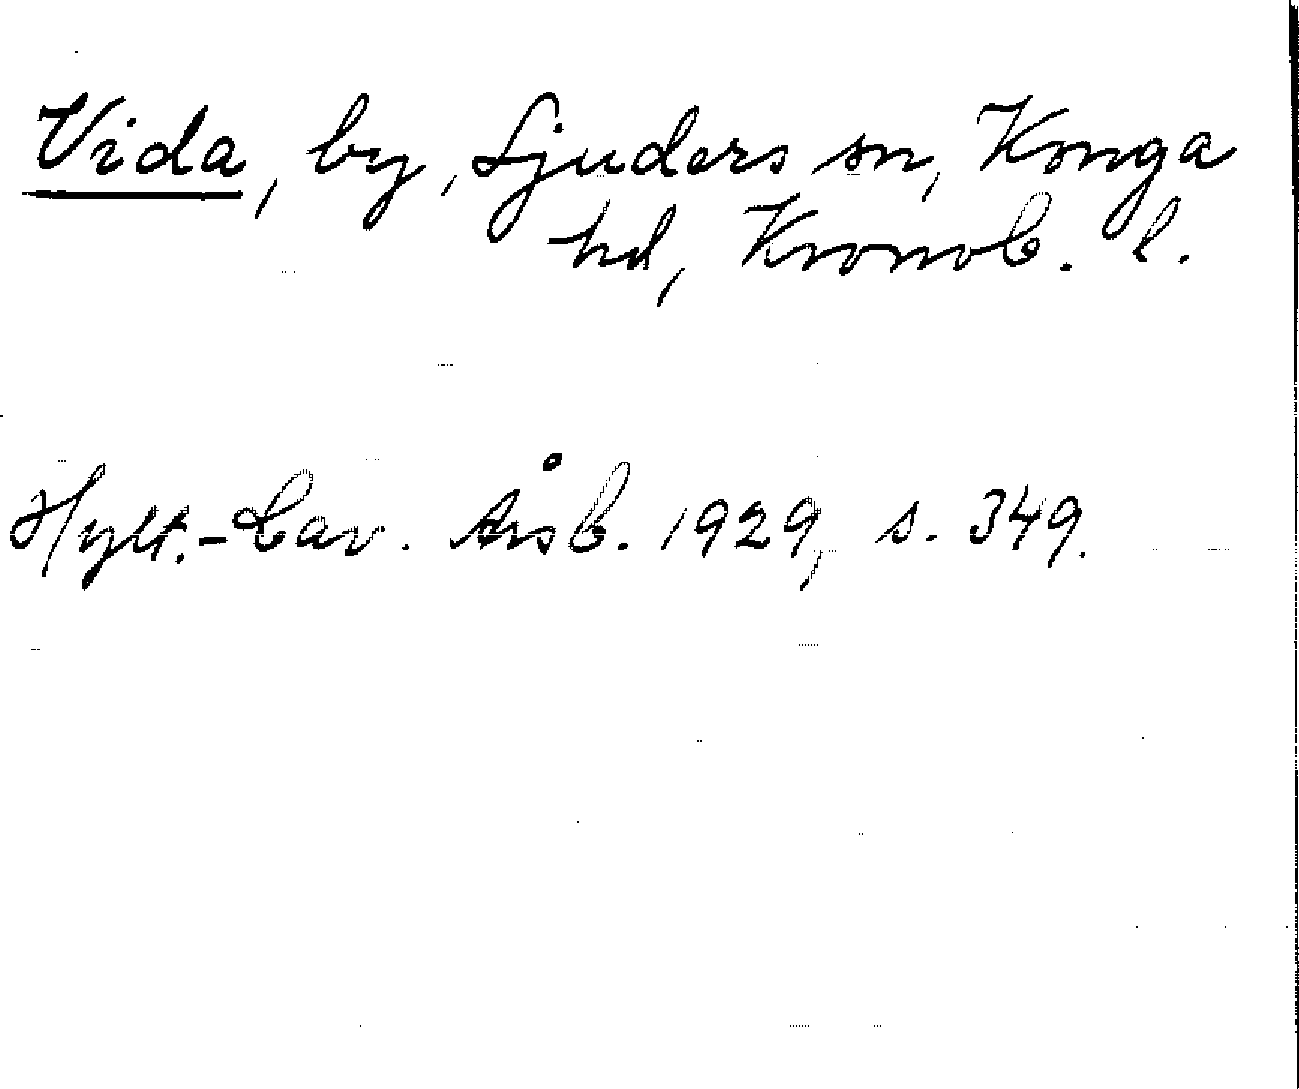 Vida, by, Ljuders sn, Konga
hd, Kronob. l.
Hylt.-Cav. Årsb. 1929, s. 349.